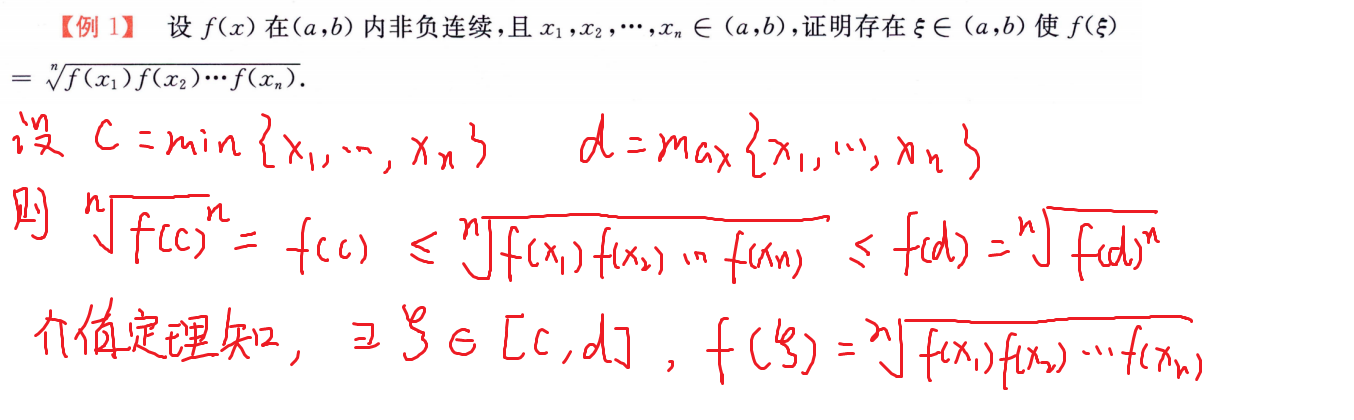 【例 1】 设 f(x) 在(a,b) 内非负连续,且 x₁,x₂,⋯,xₙ ∈ (a,b),证明存在 ξ∈ (a,b) 使 f(ξ)
= ⁿ√(f(x₁)f(x₂)⋯f(xₙ)).
设 C = min{x₁,⋯,xₙ} d = max{x₁,⋯,xₙ}
则 ⁿ√(f(c)ⁿ) = f(c) ≤ ⁿ√(f(x₁)f(x₂)⋯f(xₙ)) ≤ f(d) = ⁿ√(f(d)ⁿ)
介值定理知, ∃ ξ ∈ [c,d], f(ξ) = ⁿ√(f(x₁)f(x₂)⋯f(xₙ))